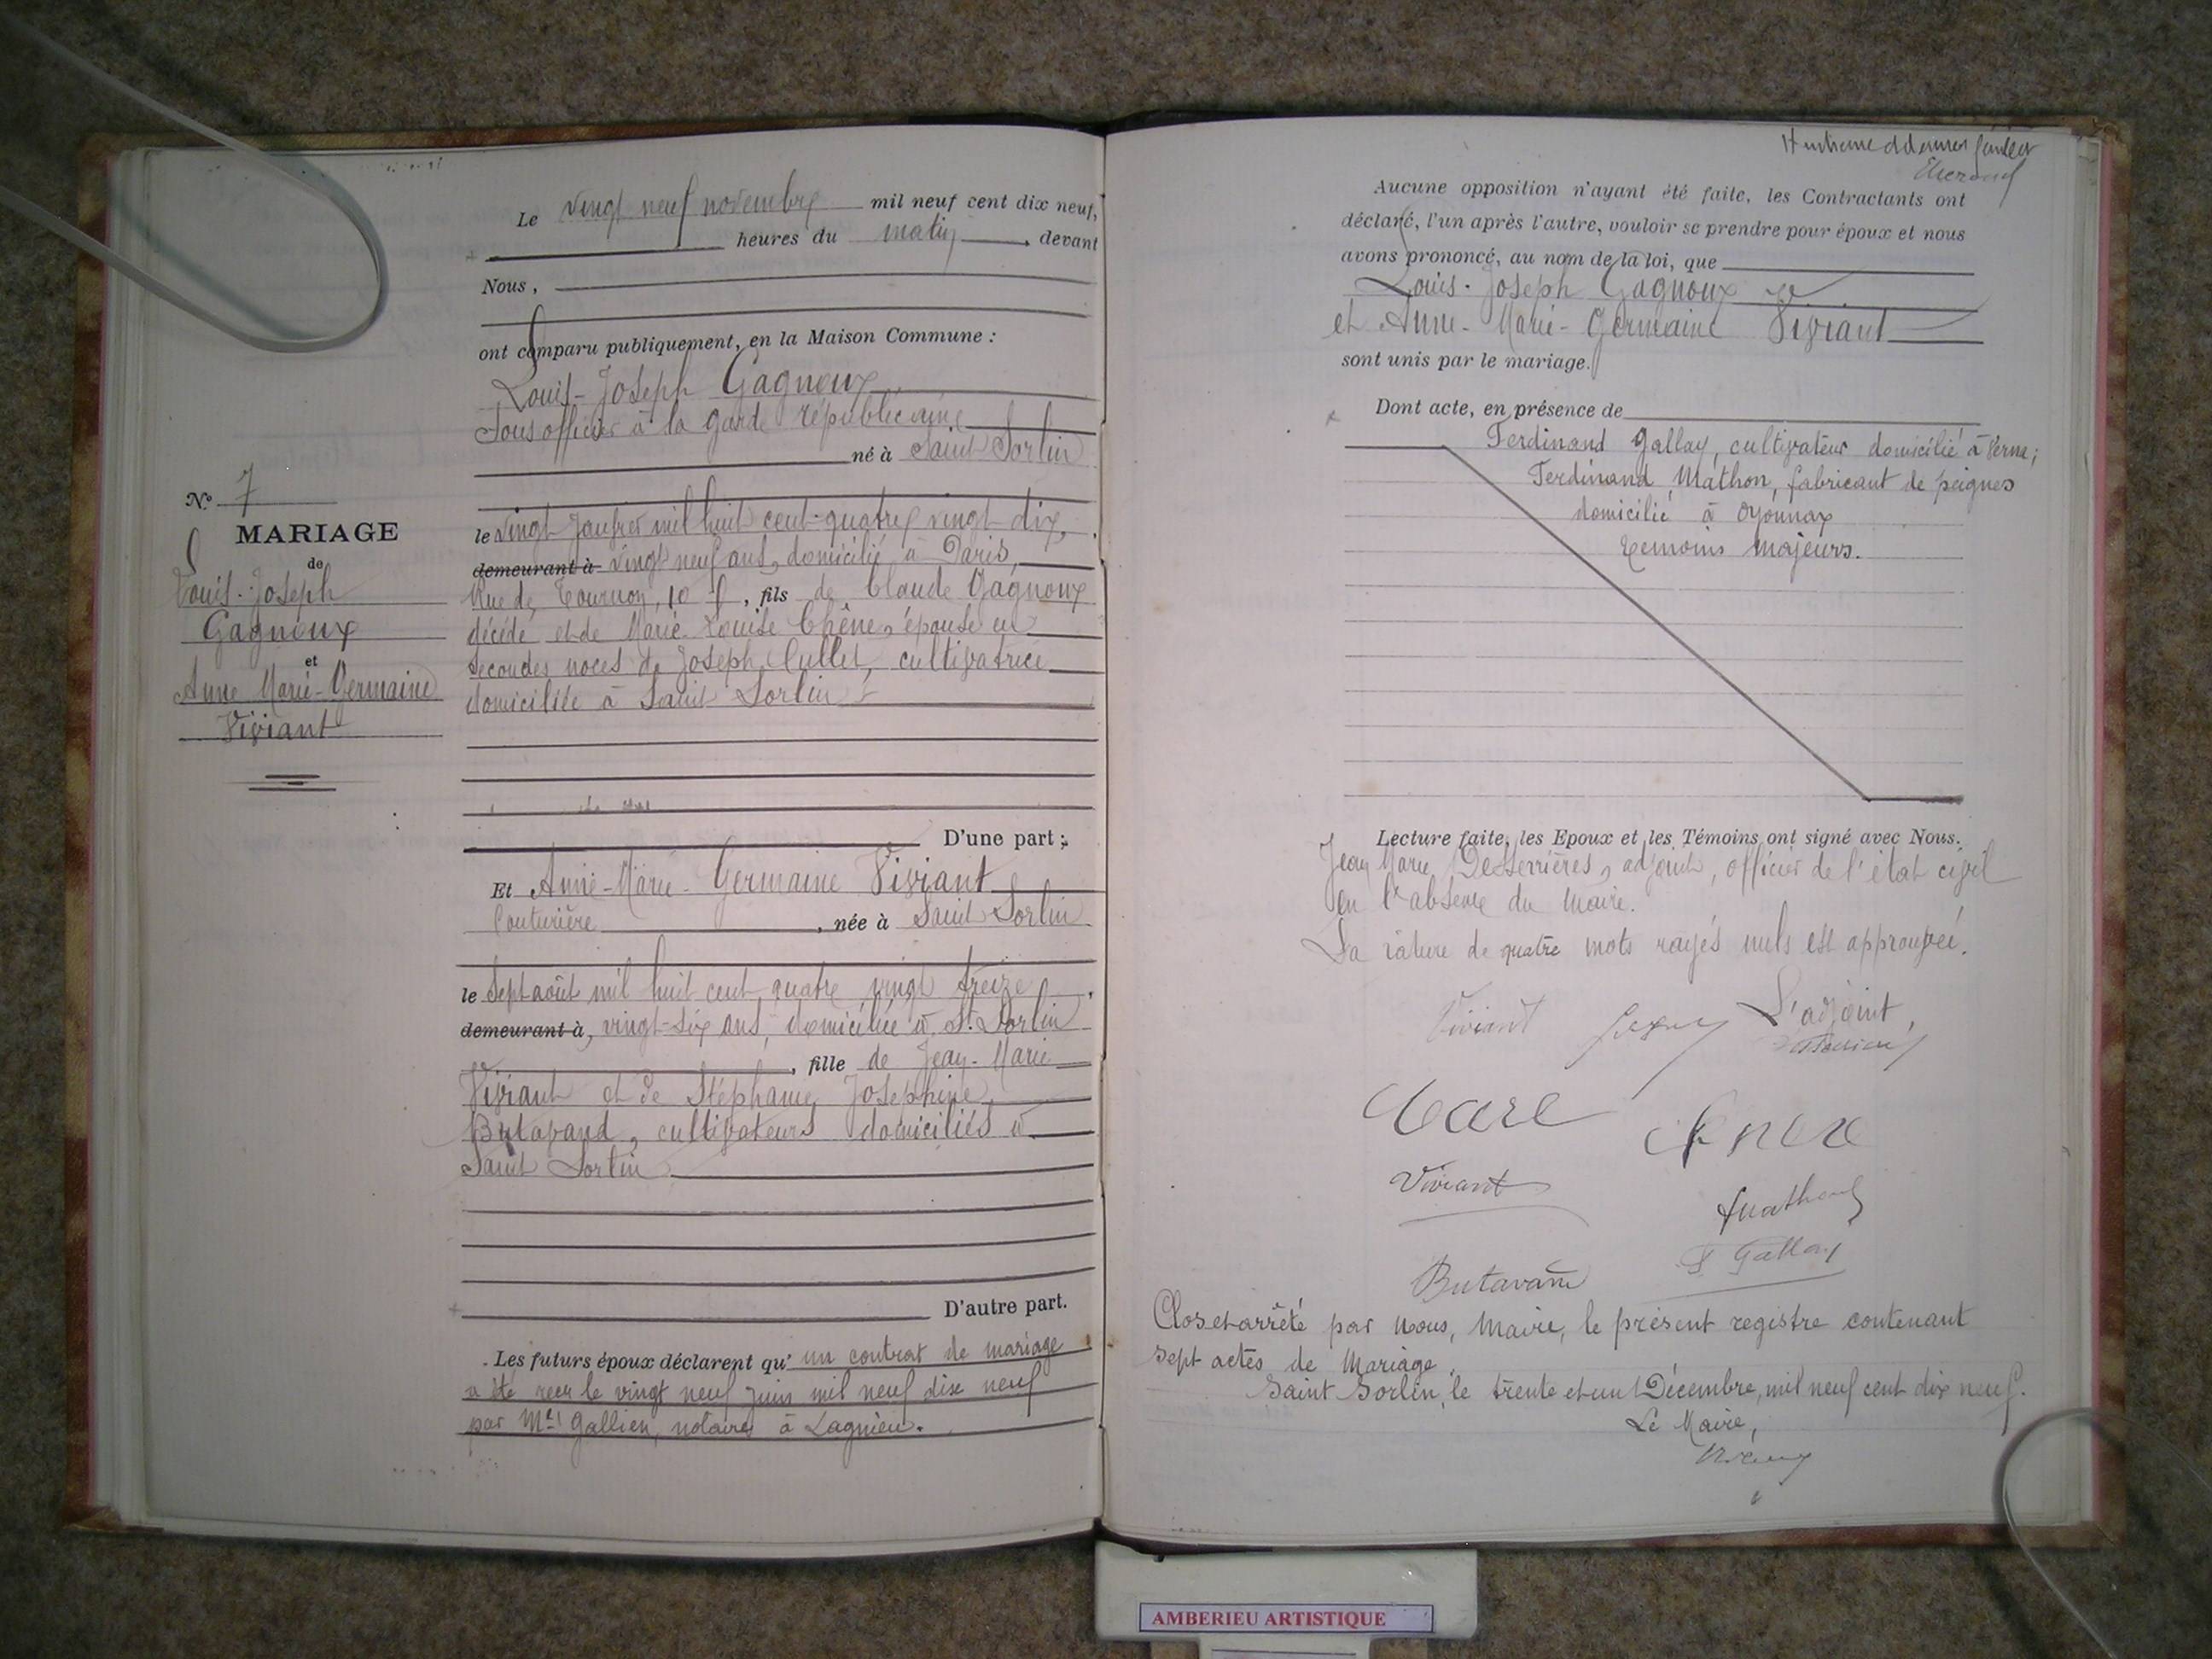 Le vingt neuf novembre mil neuf cent dix neuf,
heures du matin, devant
Nous,
ont comparu publiquement, en la Maison Commune :
Louis-Joseph Gagnoux
Sous officier à la garde républicaine
né à Saint Sorlin
le vingt janvier mil huit cent quatre vingt dix,
demeurant à vingt neuf ans, domicilié à Paris,
Rue de Tournon, 10, fils de Claude Gagnoux
décédé et de Marie Louise Chêne, épouse en
secondes noces de Joseph Cullet, cultivatrice
domiciliée à Saint Sorlin
D'une part ;
Et Anne-Marie-Germaine Viviant
Couturière, née à Saint Sorlin
le sept août mil huit cent quatre vingt treize
demeurant à, vingt-six ans, domiciliée à St. Sorlin
, fille de Jean-Marie
Viviant et de Stéphanie Joséphine
Butavand, cultivateurs domiciliés à
Saint Sorlin
D'autre part.
Les futurs époux déclarent qu'un contrat de mariage
a été reçu le vingt neuf juin mil neuf dix neuf
par Me Gallien, notaire à Lagnieu.
N° 7
MARIAGE
de
Louis-Joseph
Gagnoux
et
Anne Marie-Germaine
Viviant
Aucune opposition n'ayant été faite, les Contractants ont
déclaré, l'un après l'autre, vouloir se prendre pour époux et nous
avons prononcé, au nom de la loi, que
Louis-Joseph Gagnoux
et Anne-Marie-Germaine Viviant
sont unis par le mariage.
Dont acte, en présence de
Ferdinand Gallay, cultivateur domicilié à
Ferdinand Mathon, fabricant de peignes
domicilié à Oyonnax
témoins majeurs.
Lecture faite, les Epoux et les Témoins ont signé avec Nous.
Jean Marie Desserrières, adjoint, officier de l'état civil
en l'absence du Maire.
La rature de quatre mots rayés nuls est approuvée.
Viviant L'adjoint,
Viviant
Mathon
F Gallay
Butavand
Clos et arrêté par nous, Maire, le présent registre contenant
sept actes de Mariage.
Saint Sorlin, le trente et un Décembre, mil neuf cent dix neuf.
Le Maire,
AMBERIEU ARTISTIQUE